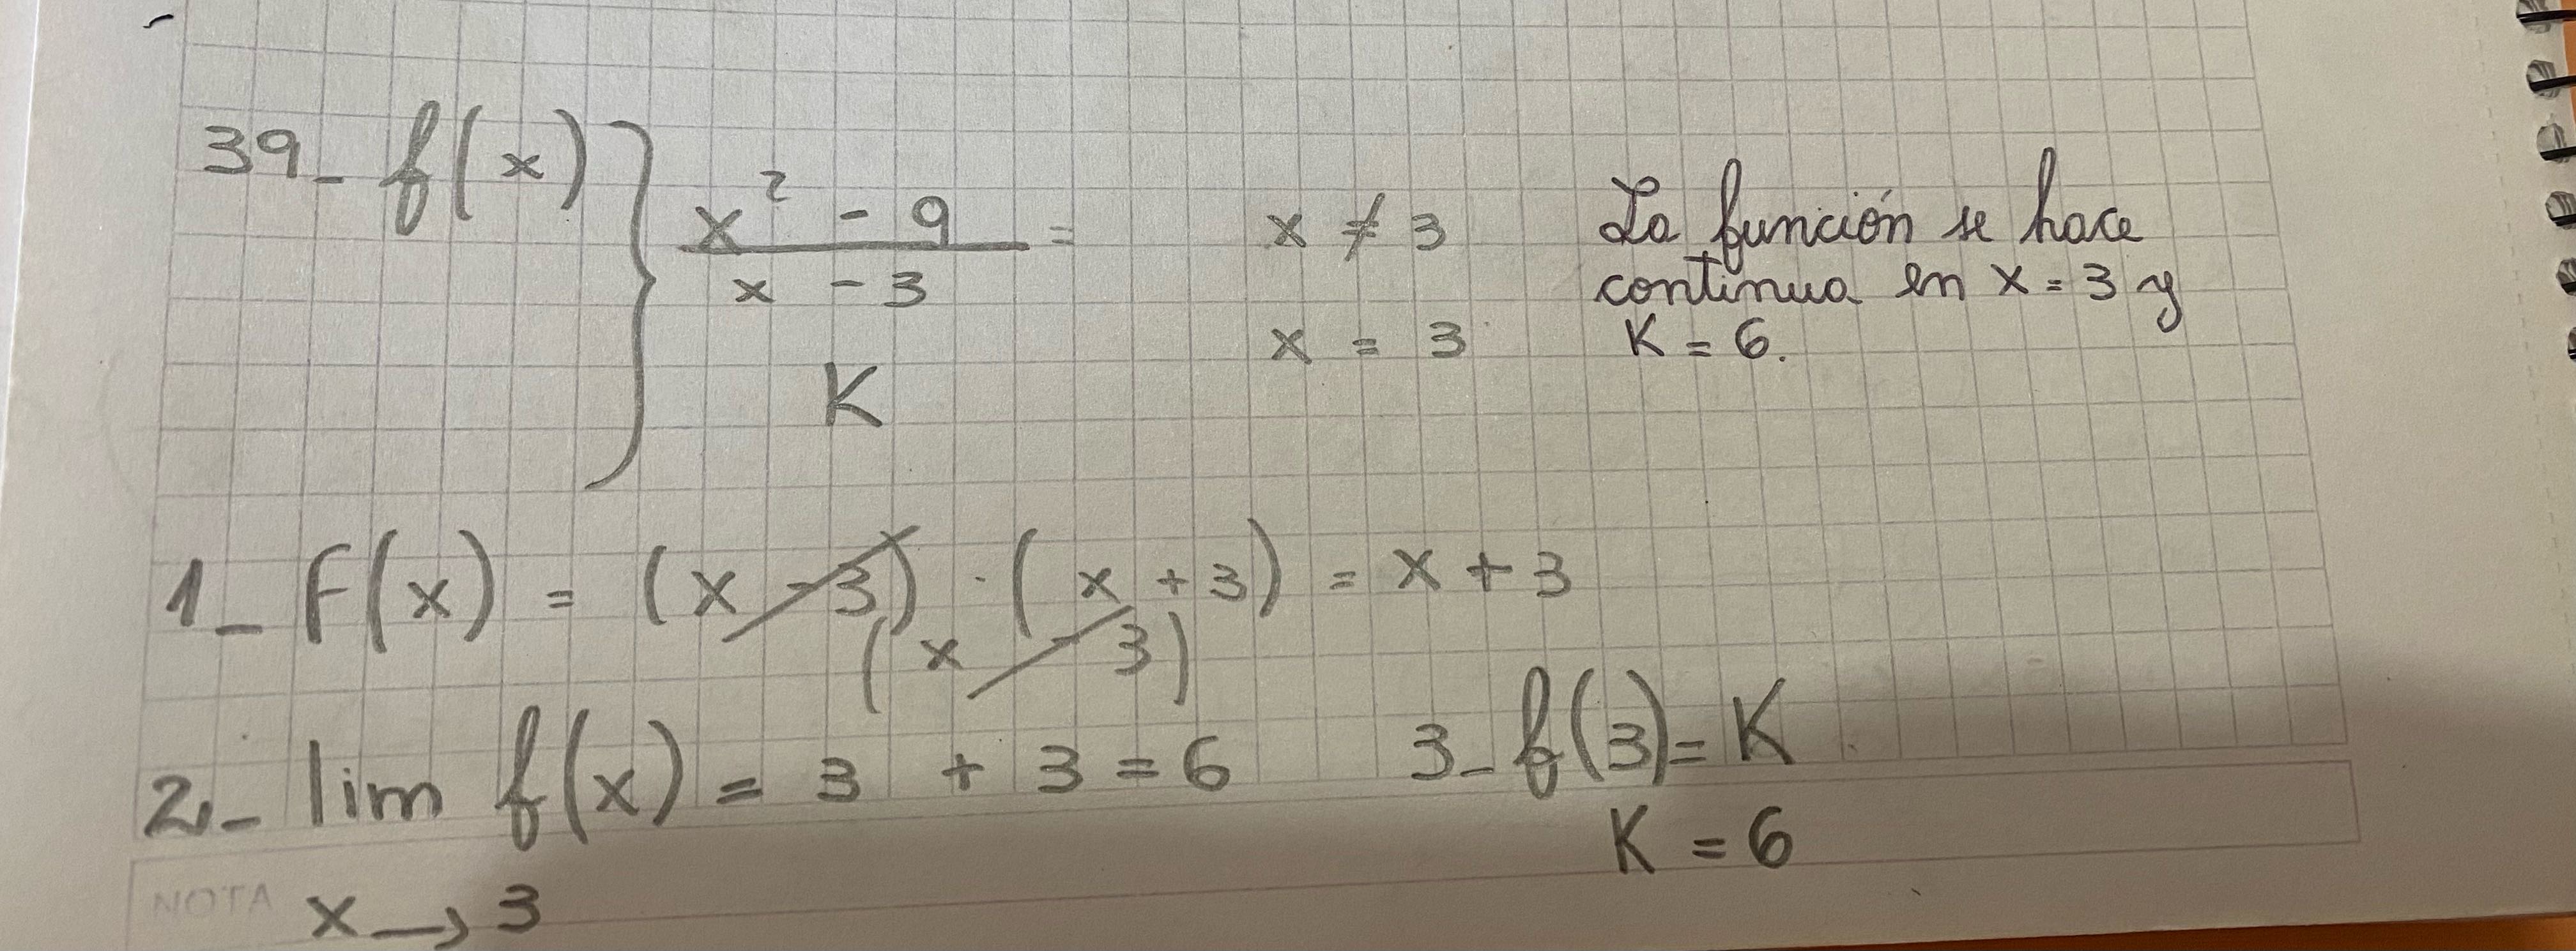 39_ f(x) } x² - 9 = x ≠ 3
x - 3
K x = 3
La función se hace
continua en x = 3 y
K = 6.
1_ F(x) = (x - 3) · (x + 3) = x + 3
(x - 3)
2_ lim f(x) = 3 + 3 = 6
x → 3
3_ f(3) = K
K = 6
NOTA